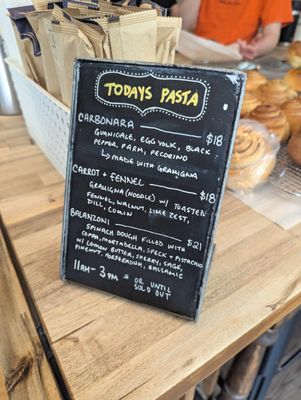 TODAYS PASTA
CARBONARA — $18
GUANICALE, EGG YOLK, BLACK
PEPPER, PARM, PECORINO
↳ MADE WITH GRAMIGNA
CARROT + FENNEL — $18
GRAMIGNA (NOODLE) W/ TOASTED
FENNEL, WALNUT, LIME ZEST,
DILL, CUMIN
BALANZONI $21
SPINACH DOUGH FILLED WITH
COPPA, MORTADELLA, SPECK + PISTACHIO
W/ LEMON BUTTER, SHERRY, SAGE,
PINENUT, BALSAMIC
11AM - 3PM * OR UNTIL
SOLD OUT